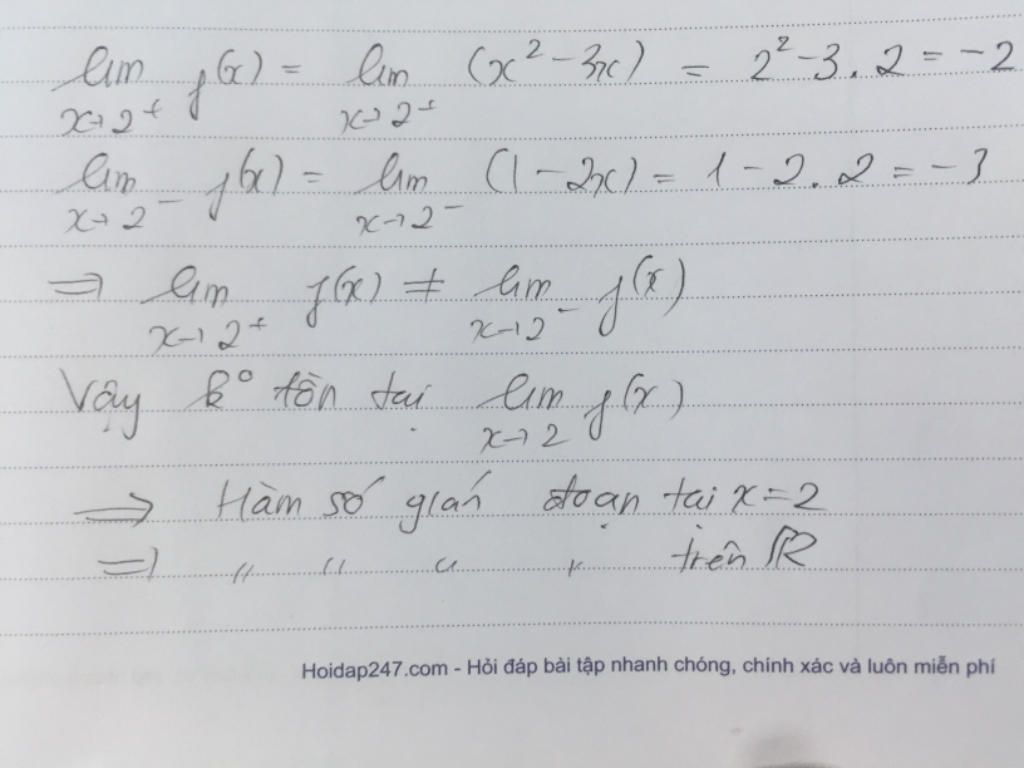 lim f(x) = lim (x² - 3x) = 2² - 3 . 2 = -2
x→2⁺ x→2⁺
lim f(x) = lim (1 - 2x) = 1 - 2 . 2 = -3
x→2⁻ x→2⁻
⇒ lim f(x) ≠ lim f(x)
x→2⁺ x→2⁻
Vậy k° tồn tại lim f(x)
x→2
⇒ Hàm số gián đoạn tại x=2
⇒ " " " " trên ℝ
Hoidap247.com - Hỏi đáp bài tập nhanh chóng, chính xác và luôn miễn phí